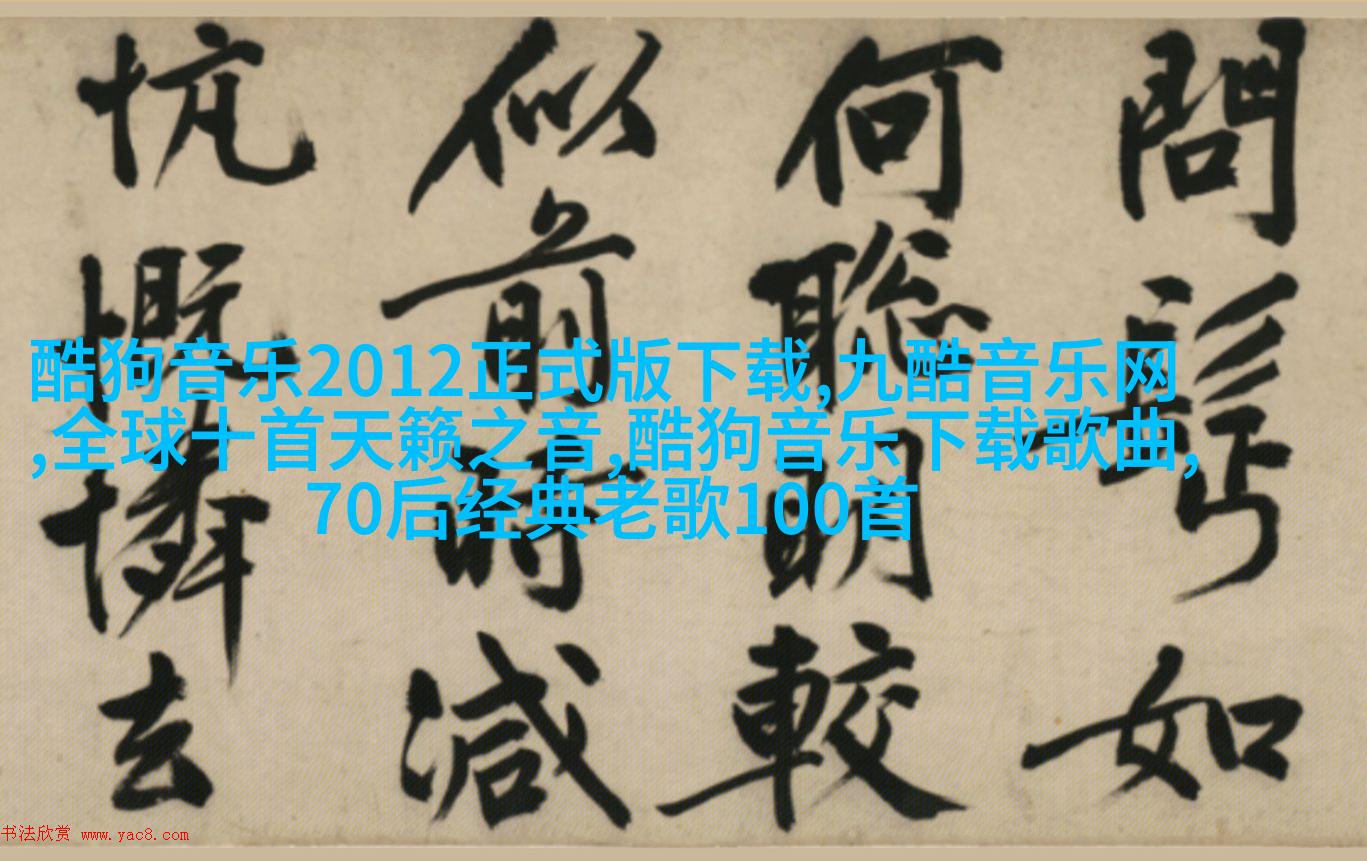 問髯如
何聰明較
似前時減
忼慨憐去
酷狗音乐2012正式版下载,九酷音乐网
,全球十首天籁之音,酷狗音乐下载歌曲,
70后经典老歌100首
书法欣赏 www.yac8.com